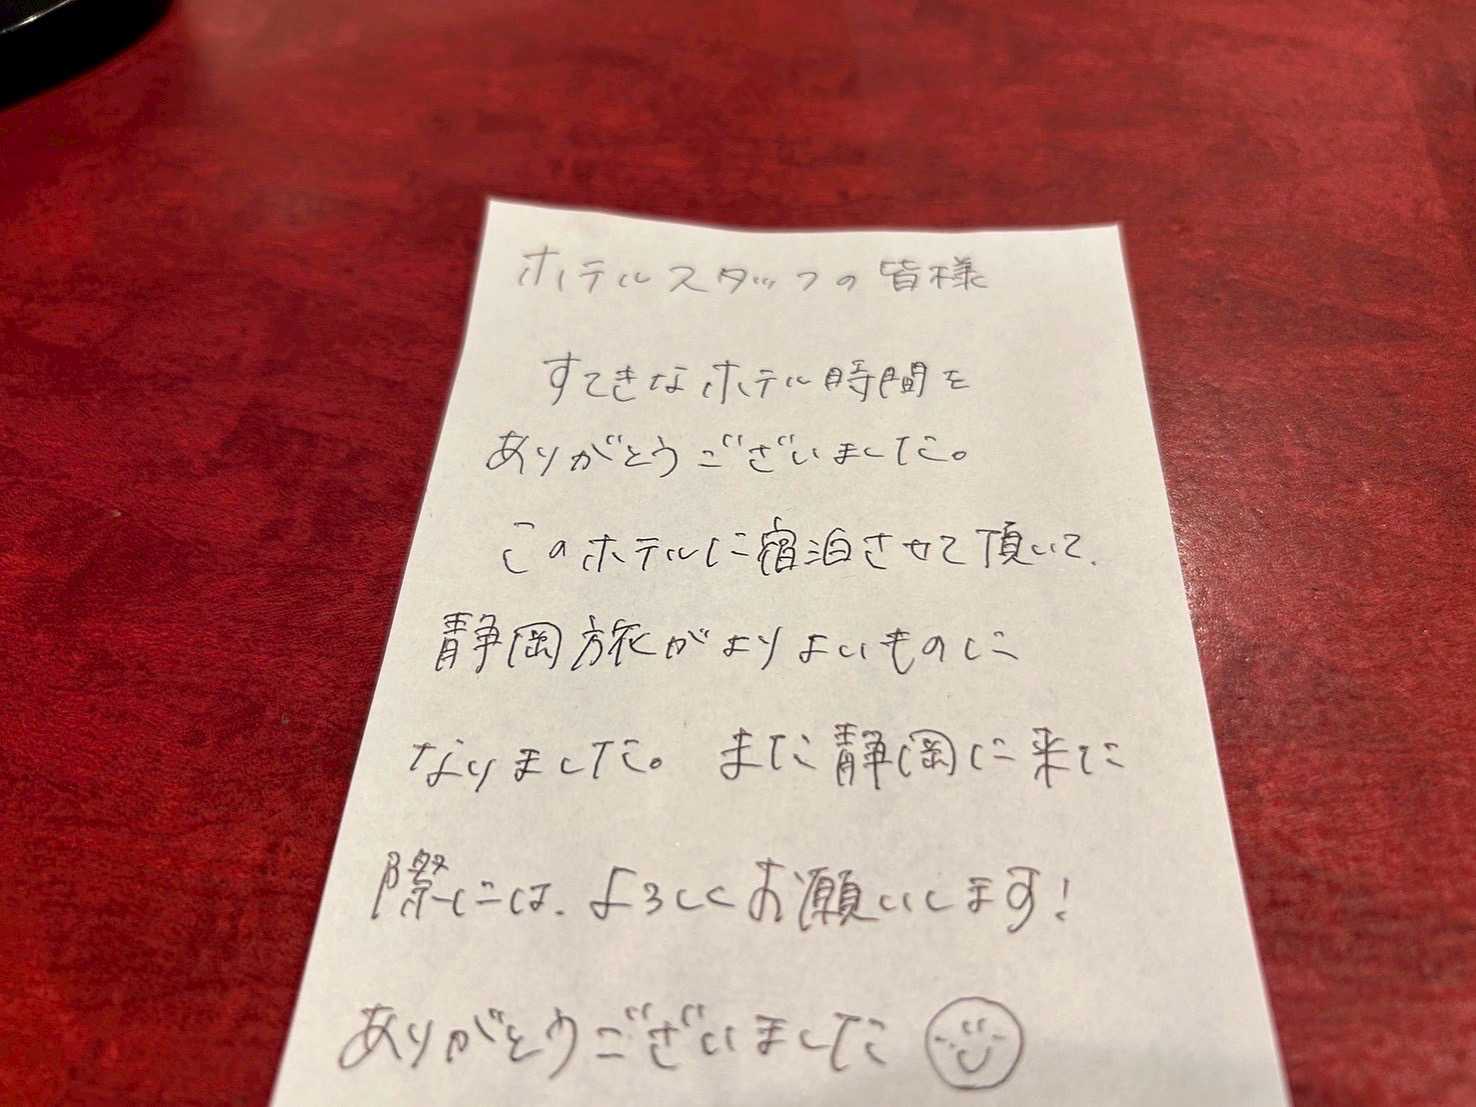 ホテルスタッフの皆様
すてきなホテル時間を
ありがとうございました。
このホテルに宿泊させて頂いて、
静岡旅がよりよいものに
なりました。また静岡に来た
際には、よろしくお願いします!
ありがとうございました